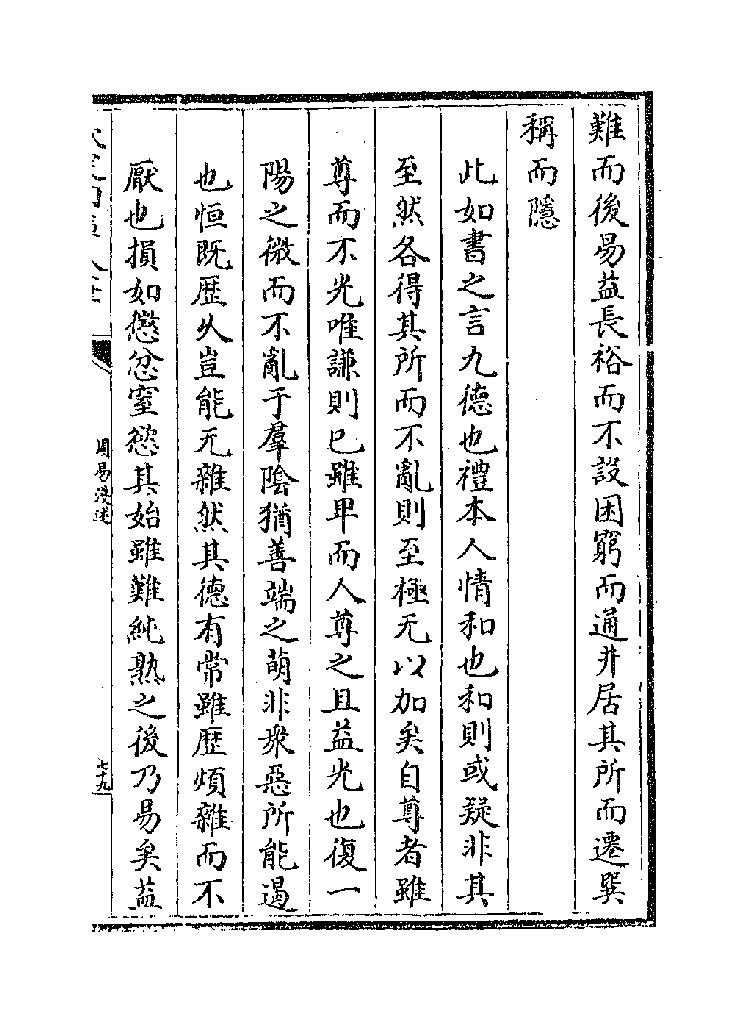 難而後易益長裕而不設困窮而通井居其所而遷巽
稱而隱
此如書之言九德也禮本人情和也和則或疑非其
至然各得其所而不亂則至極无以加矣自尊者雖
尊而不光唯謙則已雖卑而人尊之且益光也復一
陽之微而不亂于羣陰猶善端之萌非衆惡所能遏
也恒既歴乆豈能无雜然其德有常雖歴煩雜而不
厭也損如懲忿窒慾其始雖難純熟之後乃易矣益
周易淺述
七十九